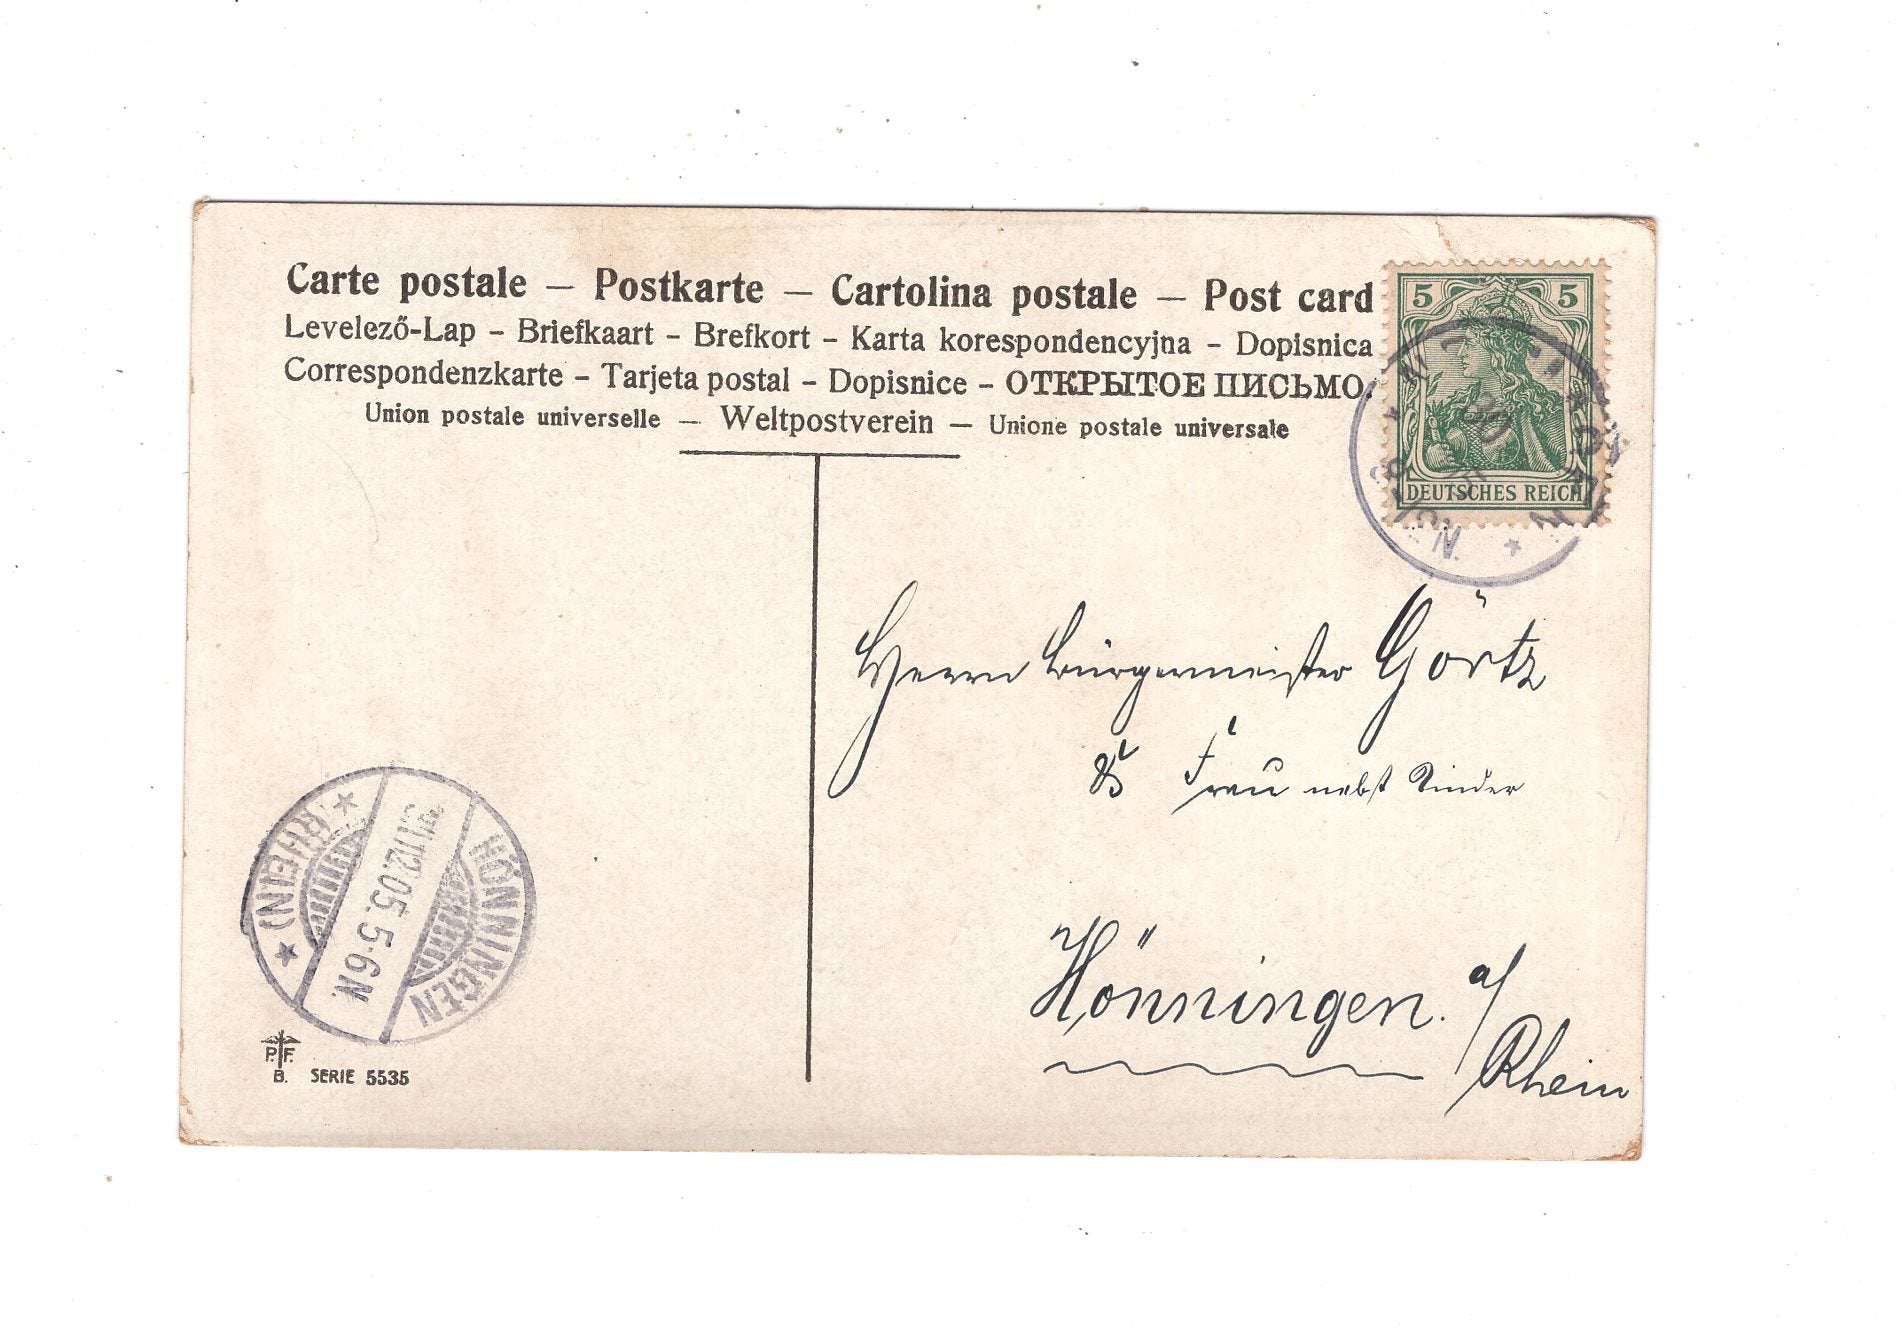 Carte postale – Postkarte – Cartolina postale – Post card
Levelező-Lap – Briefkaart – Brefkort – Karta korespondencyjna – Dopisnica
Correspondenzkarte – Tarjeta postal – Dopisnice – ОТКРЫТОЕ ПИСЬМО.
Union postale universelle — Weltpostverein — Unione postale universale
5 5
DEUTSCHES REICH
30
Herrn Bürgermeister Görtz
Frau nebst Kinder
Hönningen. a/
Rhein
HÖNNINGEN
31.12.05. 5-6 N.
(RHEIN)
P. F.
B. SERIE 5535